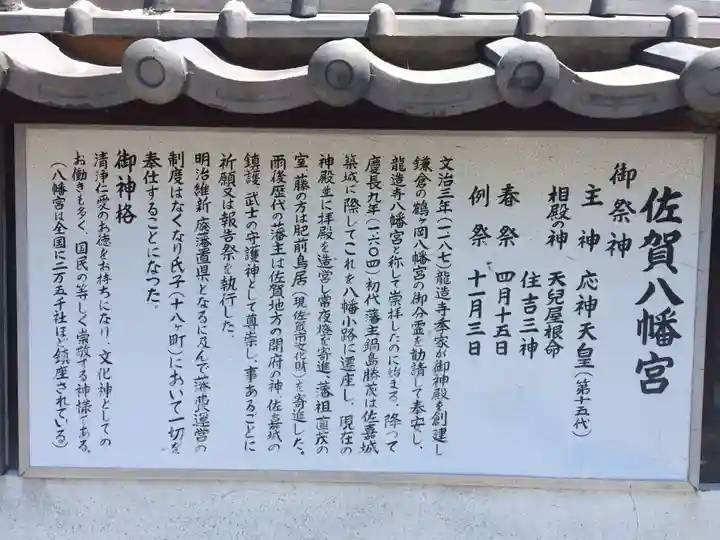 佐賀八幡宮
御祭神
主神 応神天皇(第十五代)
相殿の神 天兒屋根命
住吉三神
春祭 四月十五日
例祭 十一月三日
文治三年(一一八七)龍造寺季家が御神殿を創建し
鎌倉の鶴ヶ岡八幡宮の御分霊を勧請して奉安し、
龍造寺八幡宮と称して崇拝したのに始まる。降って
慶長九年(一六〇四)初代藩主鍋島勝茂は佐嘉城
築城に際してこれを八幡小路に遷座し、現在の
神殿並に拝殿を造営し常夜燈を寄進、藩祖直茂の
室藤の方は肥前鳥居(現佐賀市文化財)を寄進した。
爾後歴代の藩主は佐賀地方の開府の神、佐嘉城の
鎮護、武士の守護神として尊崇し、事あるごとに
祈願又は報告祭を執行した。
明治維新廃藩置県となるに及んで藩費運営の
制度はなくなり氏子(十八ヶ町)において一切を
奉仕することになった。
御神格
清浄仁愛のお徳をお持ちになり、文化神としての
お働きも多く、国民の等しく崇敬する神様である。
(八幡宮は全国に二万五千社ほど鎮座されている)